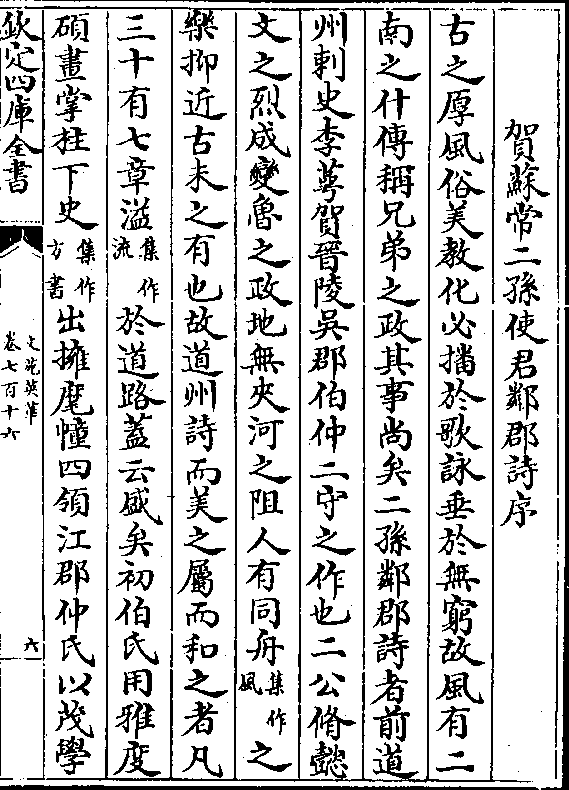 賀蘇常二孫使君鄰郡詩序
古之厚風俗美教化必播於歌詠垂於無窮故風有二
南之什傳稱兄弟之政其事尚矣二孫鄰郡詩者前道
州刺史李萼賀晉陵吳郡伯仲二守之作也二公脩懿
文之烈成變魯之政地無夾河之阻人有同舟集作風之
樂抑近古未之有也故道州詩而美之屬而和之者凡
三十有七章溢集作流於道路蓋云盛矣初伯氏用雅度
碩畫掌柱下史集作方書出擁麾幢四領江郡仲氏以茂學
欽定四庫全書
文苑英華
卷七百十六
六